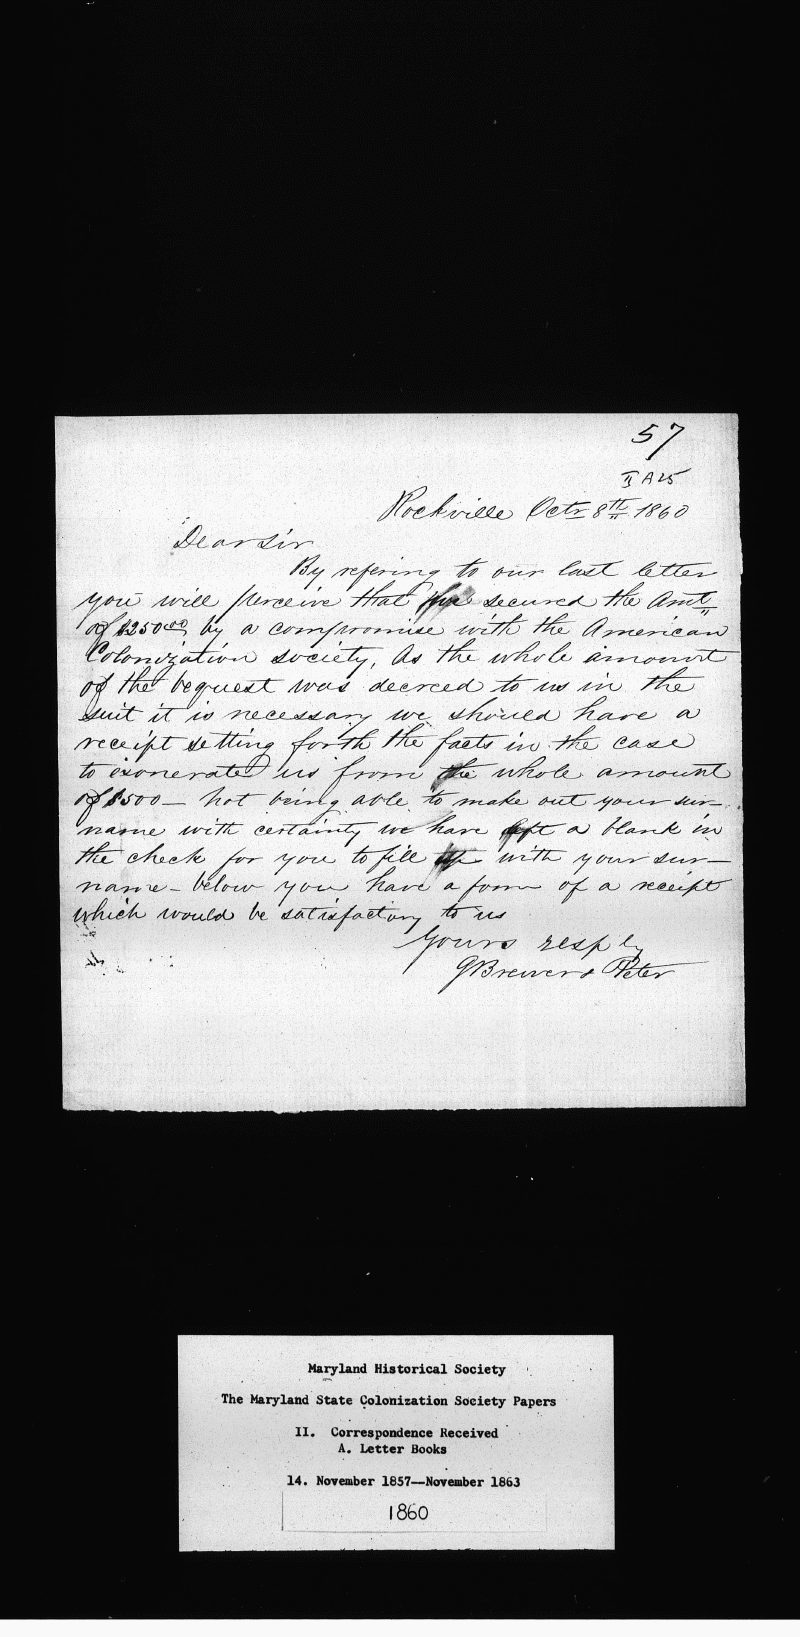 57
II A 25
Rockville Octr 8th 1860
Dear Sir
By refering to our last letter
you will perceive that secured the Amt
of $250.00, by a compromise with the American
Colonization society, As the whole amount
of the bequest was decreed to us in the
suit it is necessary we should have a
receipt setting forth the facts in the case
to exonerate us from the whole amount
of $500 — not being able to make out your sur-
name with certainty we have left a blank in
the check for you to fill up with your sur-
name - below you have a form of a receipt
which would be satisfactory to us
Yours resply
G Brewer & Peter
Maryland Historical Society
The Maryland State Colonization Society Papers
II. Correspondence Received
A. Letter Books
14. November 1857--November 1863
1860